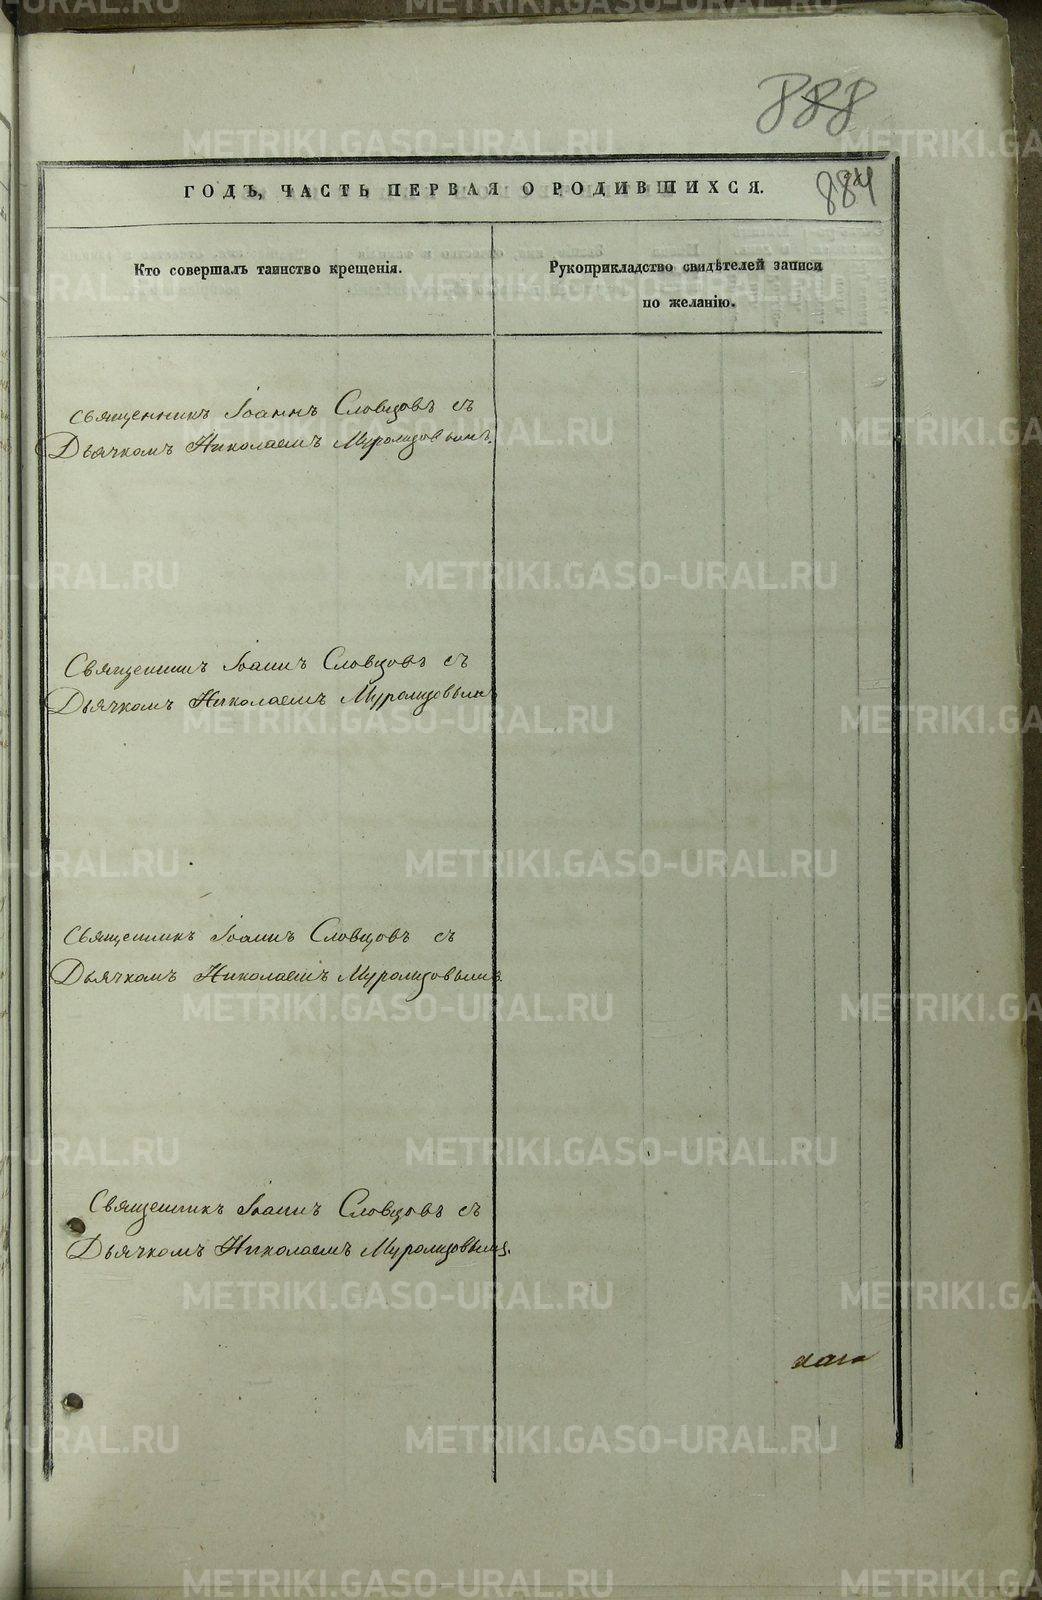 888
884
ГОДЪ, ЧАСТЬ ПЕРВАЯ О РОДИВШИХСЯ.
Кто совершалъ таинство крещенія.
Рукоприкладство свидѣтелей записи
по желанію.
Священникъ Іоаннъ Словцовъ съ
Дьячкомъ Николаемъ Муромцовымъ.
Священникъ Іоаннъ Словцовъ съ
Дьячкомъ Николаемъ Муромцовымъ
Священникъ Іоаннъ Словцовъ съ
Дьячкомъ Николаемъ Муромцовымъ.
Священникъ Іоаннъ Словцовъ съ
Дьячкомъ Николаемъ Муромцовымъ.
METRIKI.GASO-URAL.RU